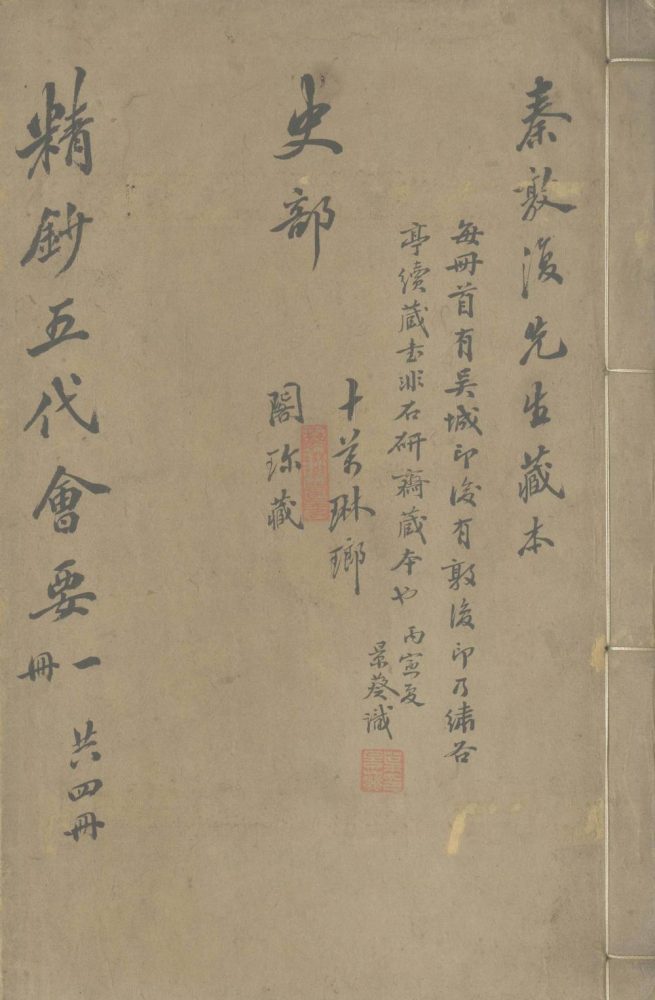 秦敦復先生藏本
每冊首有吳城印後有敦復印乃繡谷
亭續藏書非石研齋藏本也 丙寅夏
景葵識
史部
十萬琳瑯
閣珍藏
精鈔五代會要 一冊
共四冊